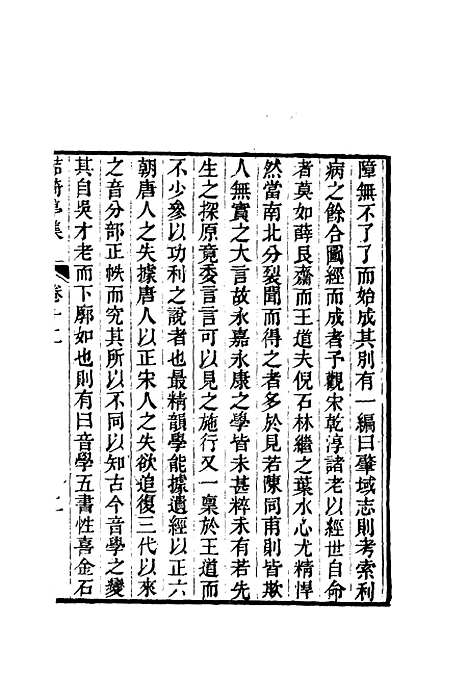 障無不了了而始成其別有一編曰肇域志則考索利
病之餘合圖經而成者予觀宋乾淳諸老以經世自命
者莫如薛艮齋而王道夫倪石林繼之葉水心尤精悍
然當南北分裂聞而得之者多於見若陳同甫則皆欺
人無實之大言故永嘉永康之學皆未甚粹未有若先
生之探原竟委言言可以見之施行又一稟於王道而
不少參以功利之說者也最精韻學能據遺經以正六
朝唐人之失據唐人以正宋人之失欲追復三代以來
之音分部正帙而究其所以不同以知古今音學之變
其自吳才老而下廓如也則有曰音學五書性喜金石
鮚埼亭集
卷十二